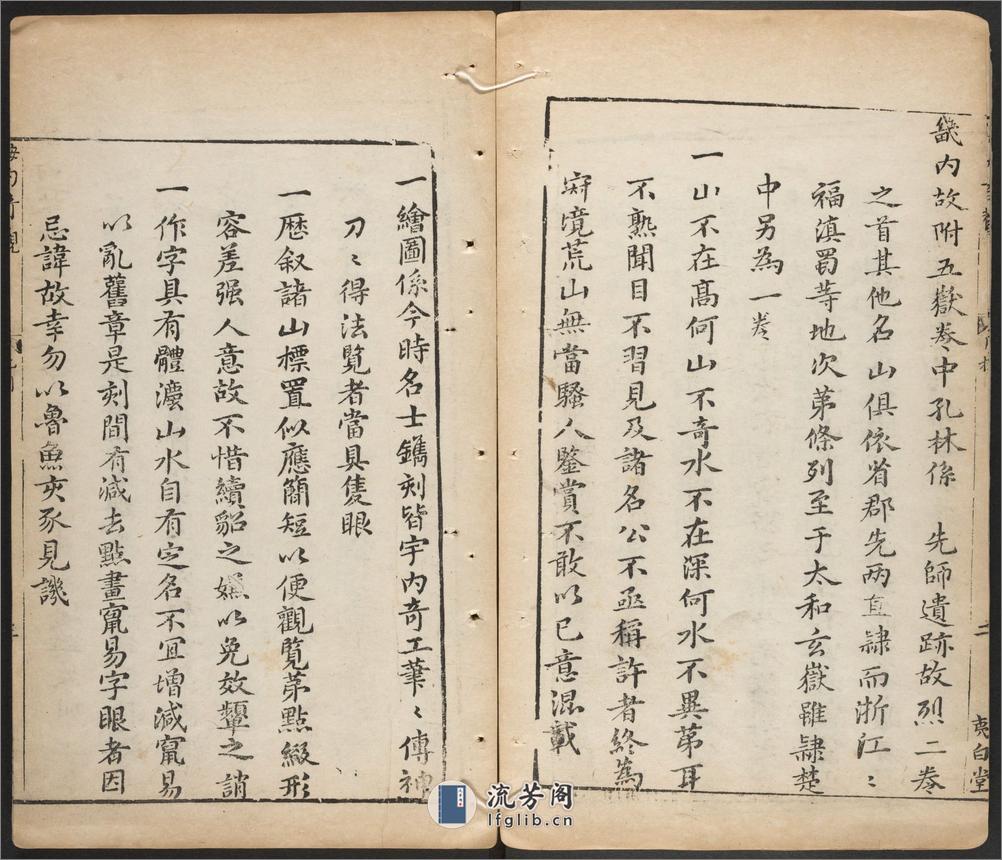 畿內故附五嶽卷中孔林係　先師遺跡故烈二卷
之首其他名山俱依省郡先两直隷而浙江〻
福滇蜀䓁地次第條列至于太和玄嶽雖隷楚
中另為一卷
一山不在髙何山不竒水不在深何水不異苐耳
不熟聞目不習見及諸名公不亟稱許者終為
窮境荒山無當騷人鑒賞不敢以已意混載
夷白堂
二
一繪圖係今時名士鐫刻皆宇內奇工筆〻傳神
刀〻得法覧者當具隻眼
一歴叙諸山標置似應簡短以便觀覧苐點綴形
容差强人意故不惜續貂之嫌以免效顰之誚
一作字具有體灋山水自有定名不宜增減竄易
以亂舊章是刻間有減去點畫竄易字眼者因
忌諱故幸勿以魯魚亥豕見譏
海內奇觀
流芳阁
lfglib.cn